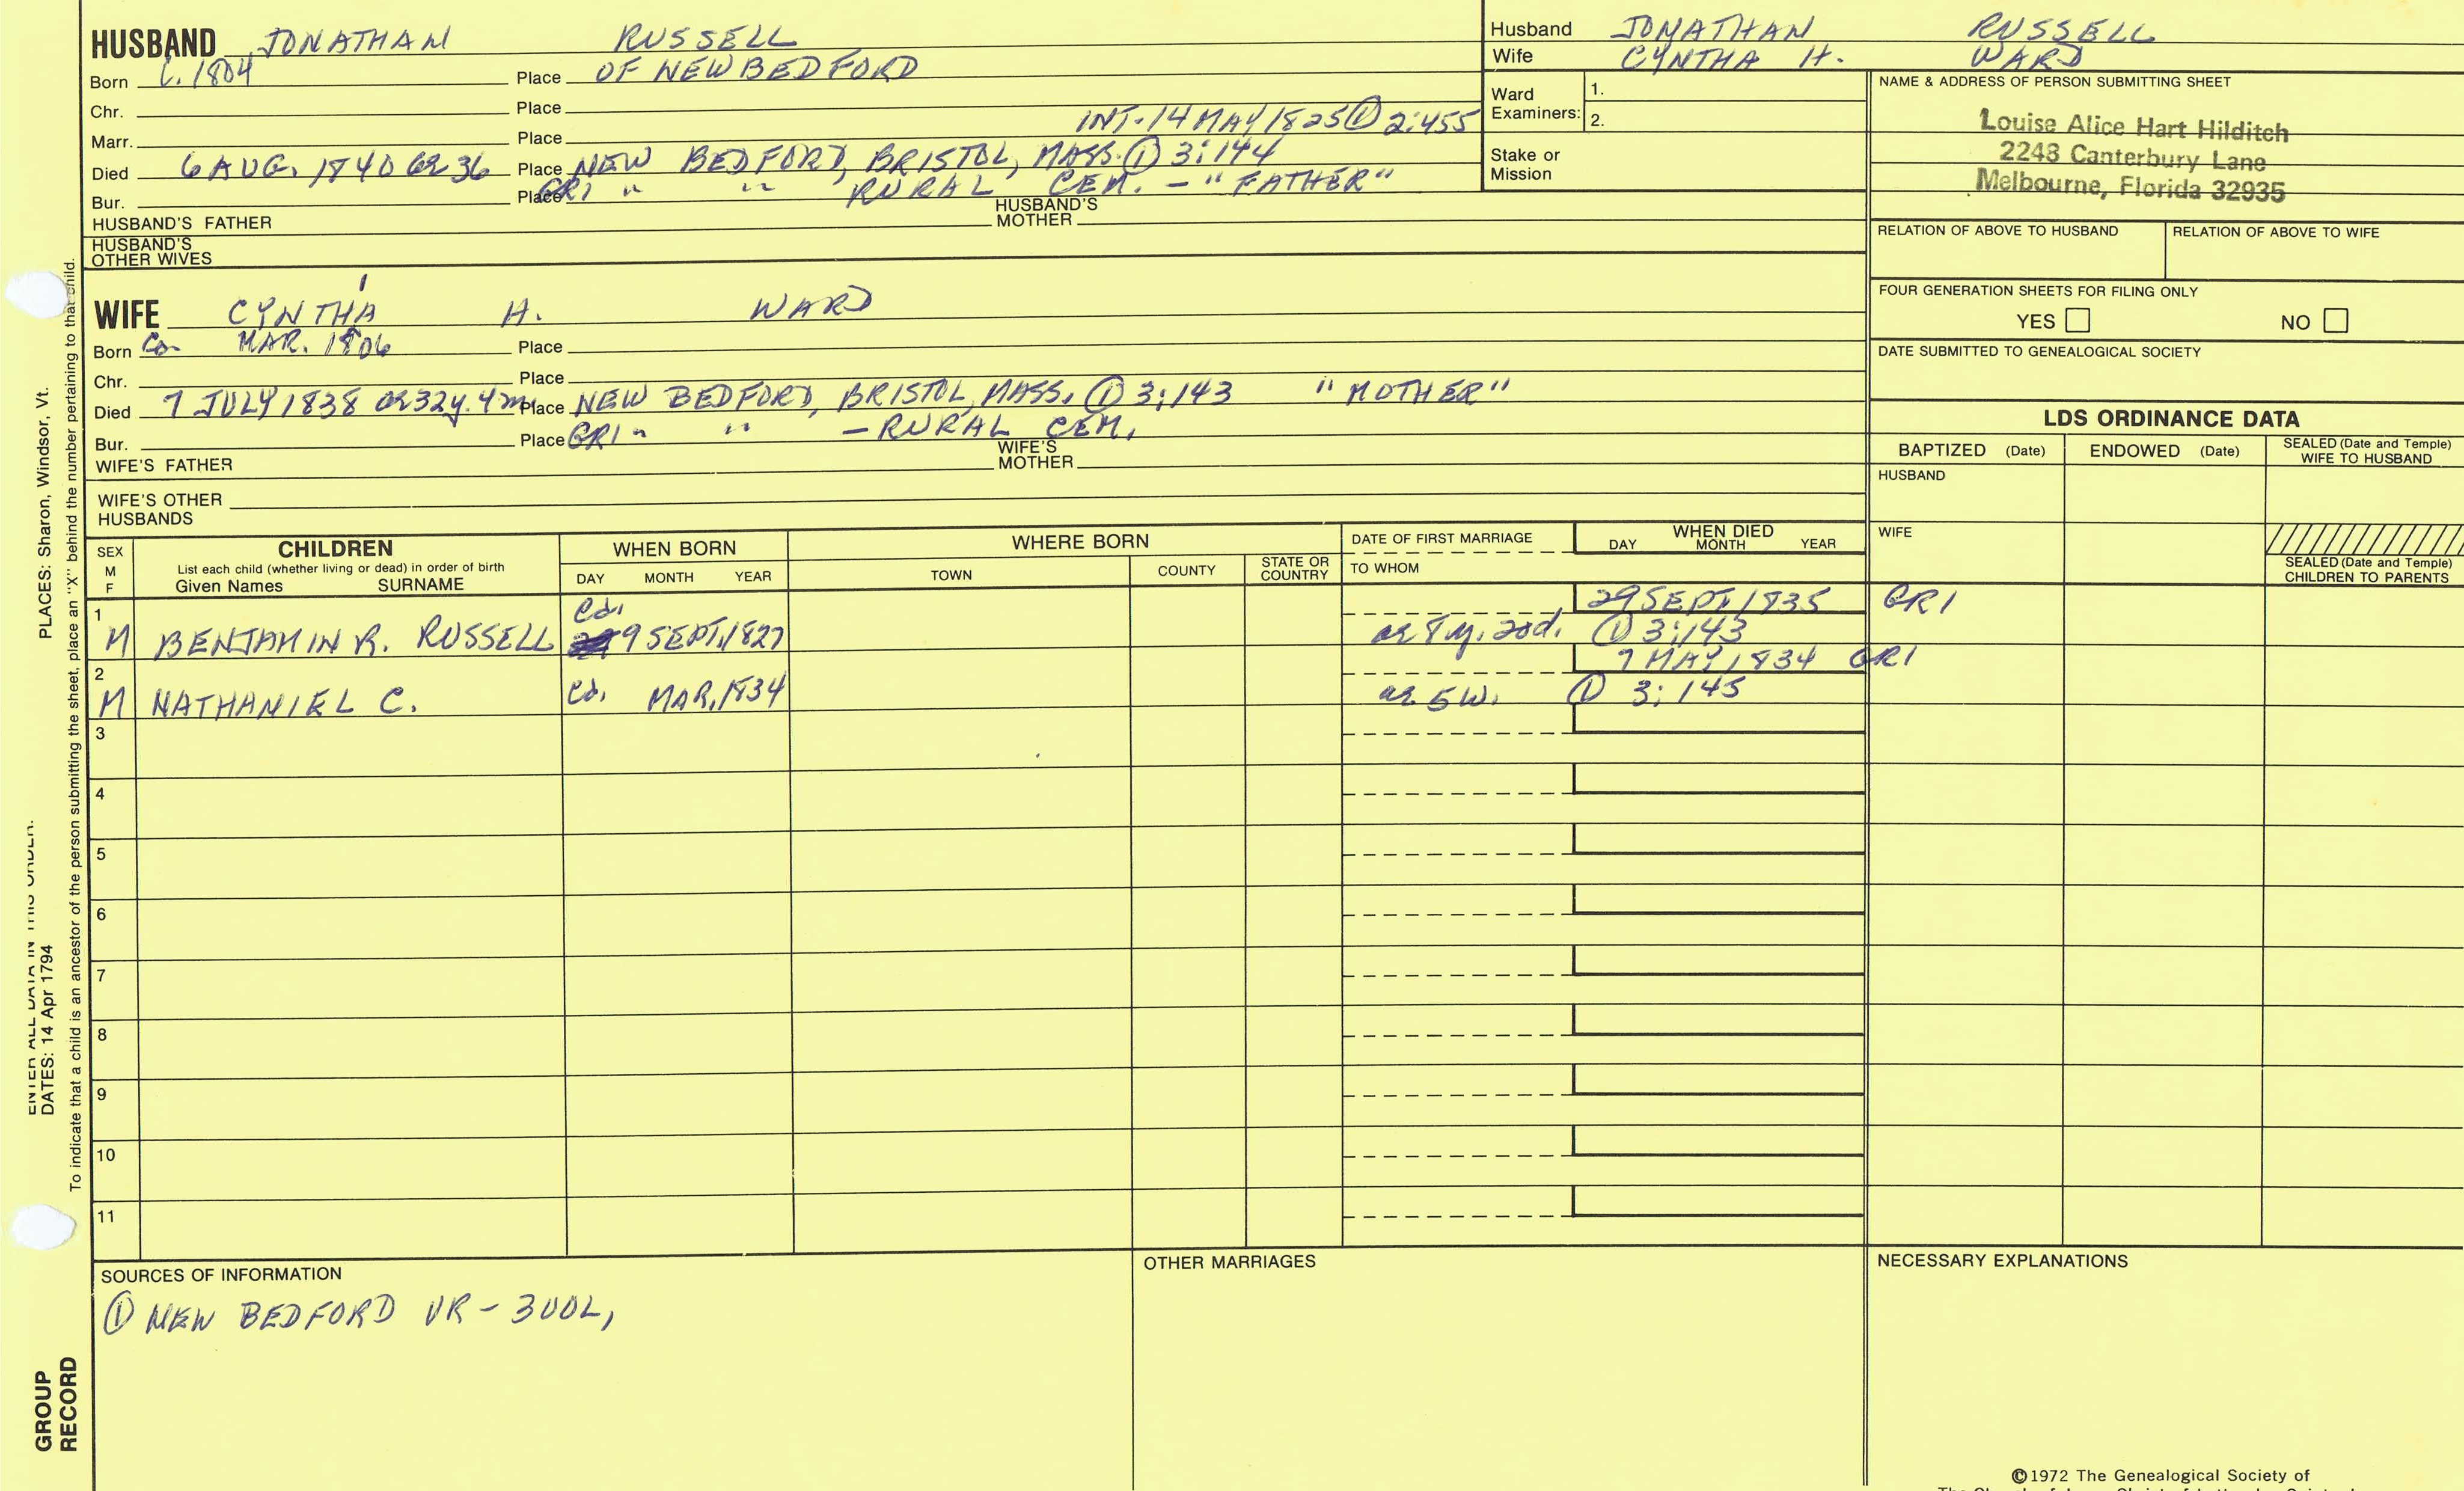 HUSBAND JONATHAN RUSSELL
Born C. 1804 Place OF NEW BEDFORD
Chr. Place
Marr. Place INT. 14 MAY 1825 ① 2:455
Died 6 AUG. 1840 ae 36 Place NEW BEDFORD, BRISTOL, MASS. ① 3:144
Bur. Place GR1 " " RURAL CEM. - "FATHER"
HUSBAND'S FATHER HUSBAND'S MOTHER
HUSBAND'S OTHER WIVES
Husband JONATHAN RUSSELL
Wife CYNTHA H. WARD
Ward Examiners: 1.
2.
Stake or Mission
NAME & ADDRESS OF PERSON SUBMITTING SHEET
Louise Alice Hart Hilditch
2248 Canterbury Lane
Melbourne, Florida 32935
RELATION OF ABOVE TO HUSBAND RELATION OF ABOVE TO WIFE
FOUR GENERATION SHEETS FOR FILING ONLY
YES NO
DATE SUBMITTED TO GENEALOGICAL SOCIETY
WIFE CYNTHIA H. WARD
Born Ca. MAR. 1806 Place
Chr. Place
Died 7 JULY 1838 ae 32y. 4m. Place NEW BEDFORD, BRISTOL, MASS. ① 3:143 "MOTHER"
Bur. Place GR1 " " - RURAL CEM.
WIFE'S FATHER WIFE'S MOTHER
WIFE'S OTHER HUSBANDS
LDS ORDINANCE DATA
BAPTIZED (Date) ENDOWED (Date) SEALED (Date and Temple) WIFE TO HUSBAND
HUSBAND
WIFE
SEALED (Date and Temple) CHILDREN TO PARENTS
SEX M F
CHILDREN
List each child (whether living or dead) in order of birth
Given Names SURNAME
WHEN BORN
DAY MONTH YEAR
WHERE BORN
TOWN COUNTY STATE OR COUNTRY
DATE OF FIRST MARRIAGE
TO WHOM
WHEN DIED
DAY MONTH YEAR
1 Ca. 29 SEPT. 1835 GR1
M BENJAMIN R. RUSSELL 9 SEPT. 1827 ae 8 y. 20d. ① 3:143
2 7 MAY 1834 GR1
M NATHANIEL C. Ca. MAR. 1834 ae 5 W. ① 3:145
3
4
5
6
7
8
9
10
11
SOURCES OF INFORMATION
① NEW BEDFORD VR - 3 VOL,
OTHER MARRIAGES
NECESSARY EXPLANATIONS
©1972 The Genealogical Society of
ENTER ALL DATA IN THIS ORDER:
DATES: 14 Apr 1794
PLACES: Sharon, Windsor, Vt.
To indicate that a child is an ancestor of the person submitting the sheet, place an "X" behind the number pertaining to that child.
GROUP
RECORD